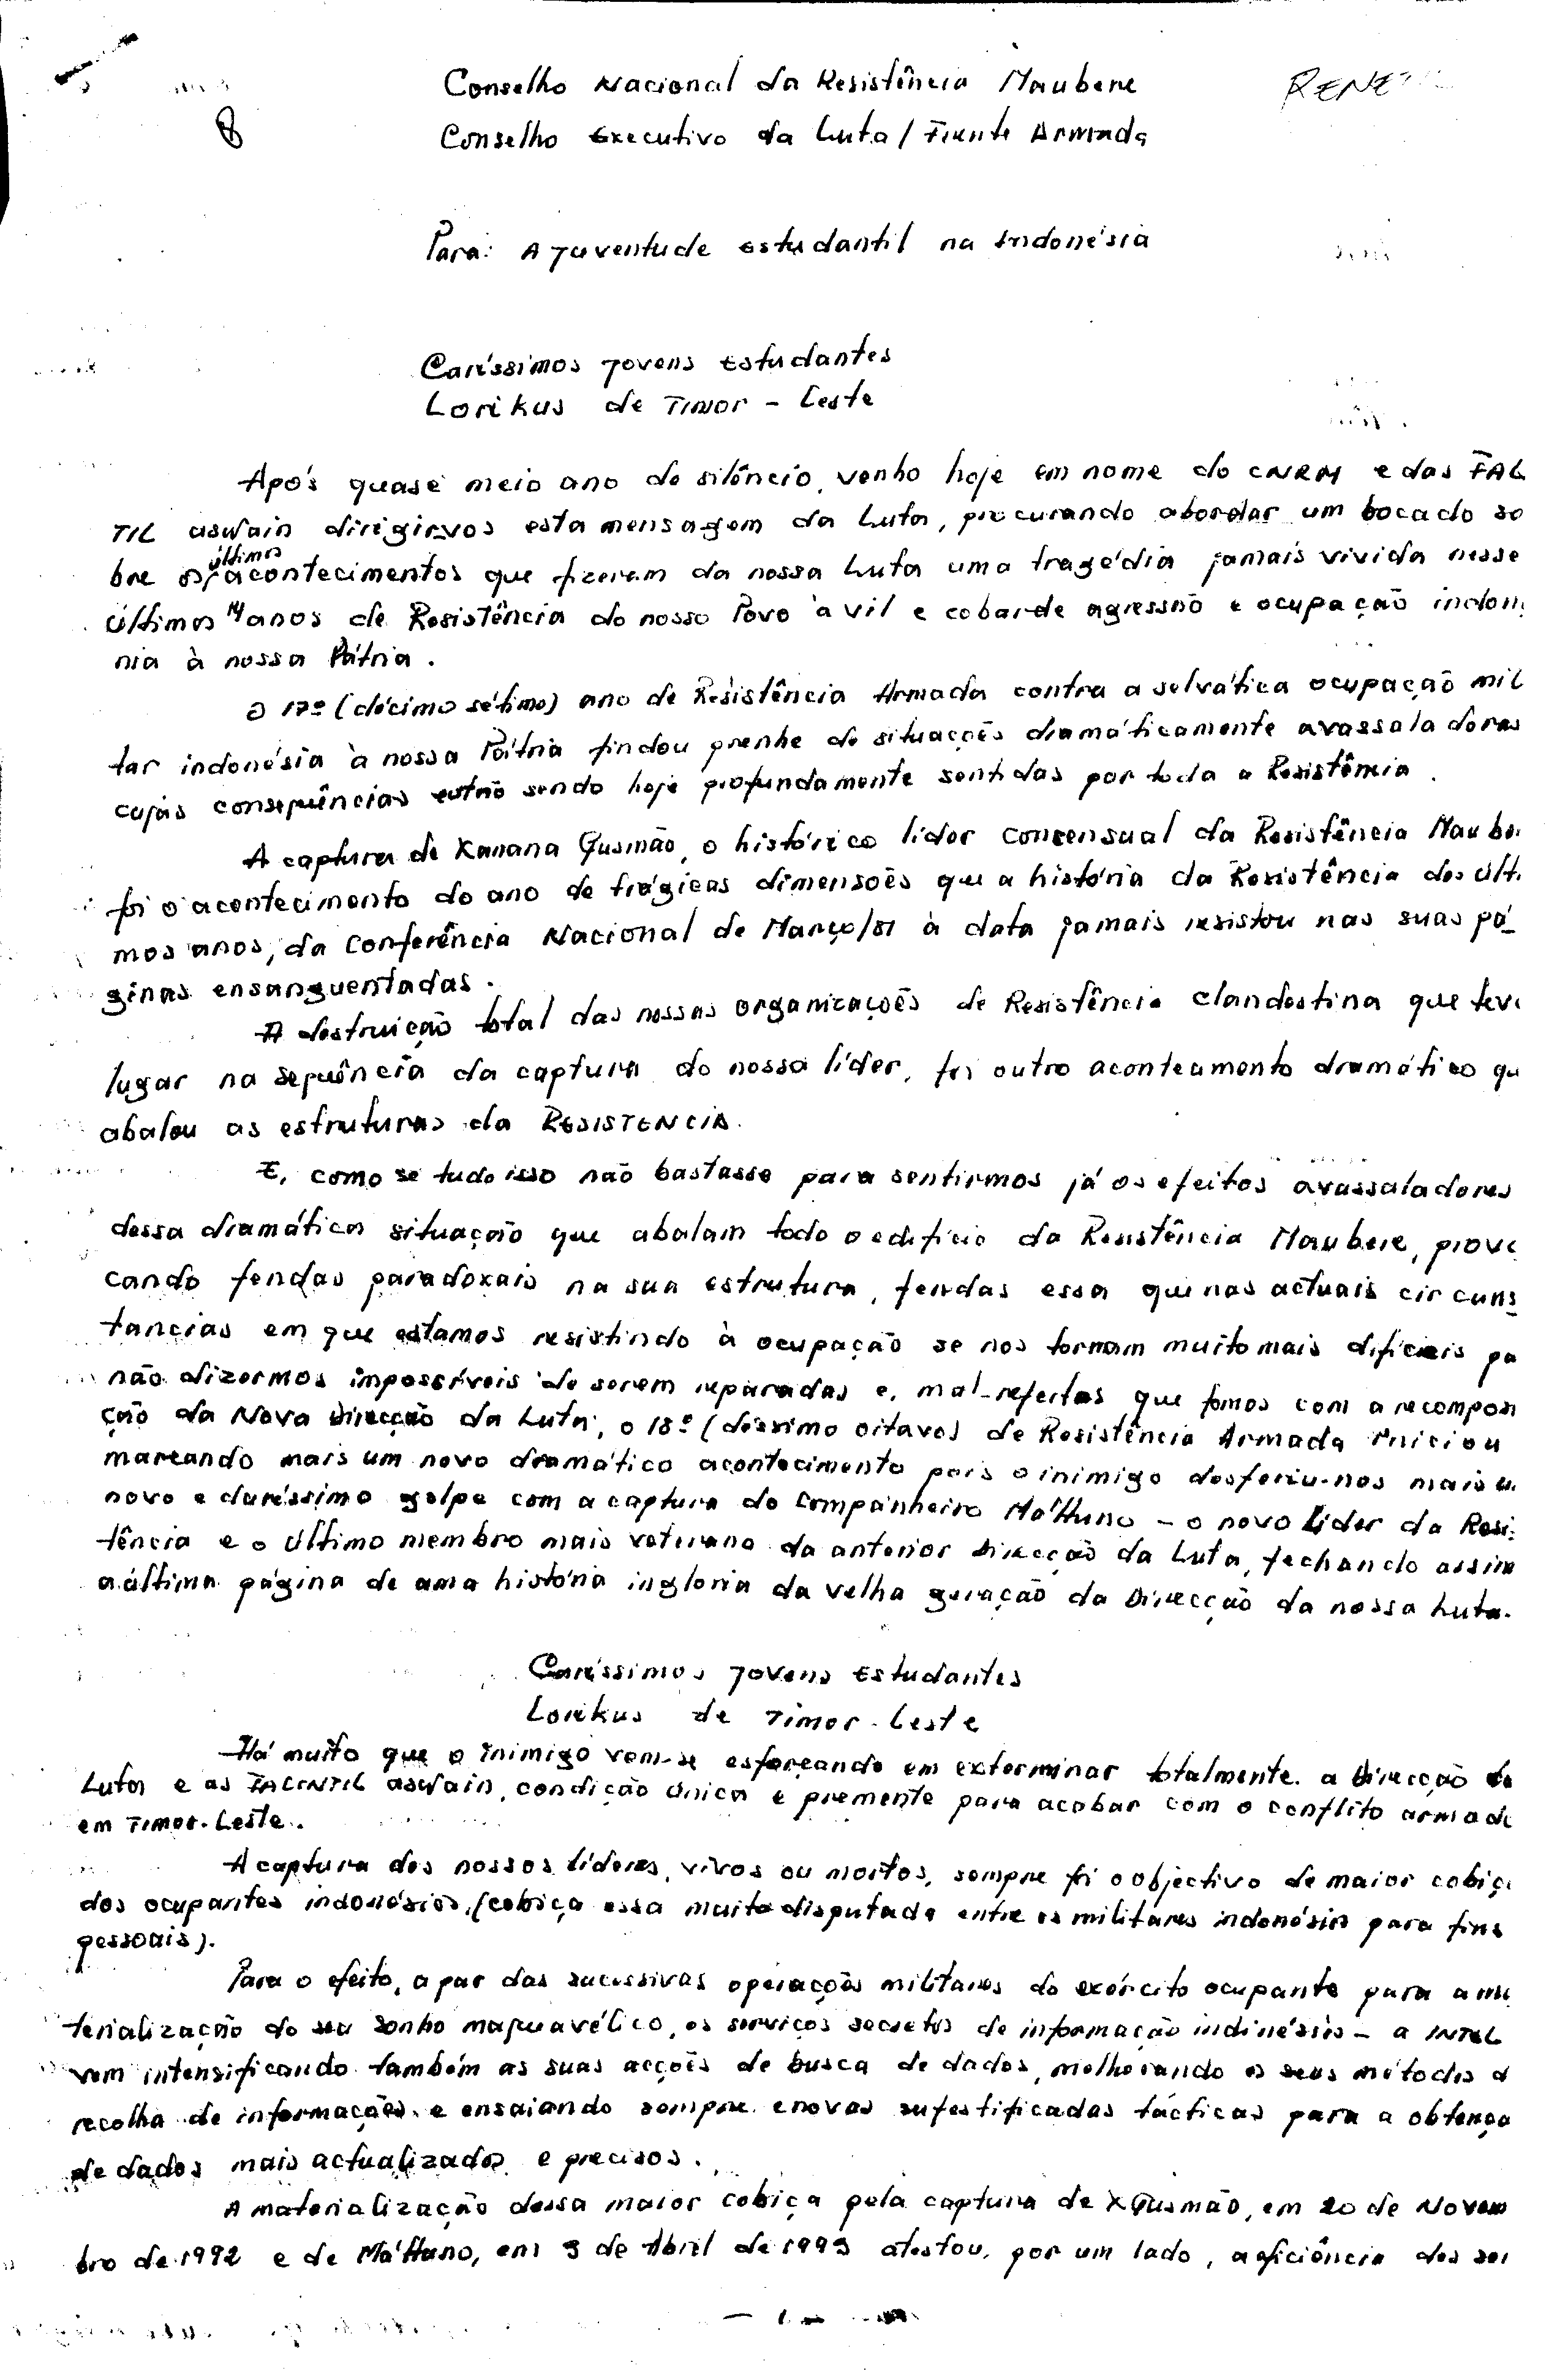 Conselho Nacional da Resistência Maubere
RENE
8
Conselho Executivo da Luta / Frente Armada
Para: A Juventude Estudantil na Indonésia
Caríssimos Jovens Estudantes
Lorikus de Timor - Leste
Após quase meio ano de silêncio, venho hoje em nome do CNRM e das FAL
TIL aswain dirigir-vos esta mensagem da Luta, procurando abordar um bocado so
bre os últimos acontecimentos que fizeram da nossa Luta uma tragédia jamais vivida nesse
últimos 14 anos de Resistência do nosso Povo à vil e cobarde agressão e ocupação indon
nia à nossa Pátria.
O 17º (décimo sétimo) ano de Resistência Armada contra a selvática ocupação mil
tar indonésia à nossa Pátria findou prenhe de situações dramáticamente avassaladoras
cujas consequências estão sendo hoje profundamente sentidas por toda a Resistência.
A captura de Xanana Gusmão, o histórico líder consensual da Resistência Maube
foi o acontecimento do ano de trágicas dimensões que a história da Resistência dos últi
mos anos, da Conferência Nacional de Março/81 à data jamais resistou nas suas pá_
ginas ensanguentadas.
A destruição total das nossas organizações de Resistência clandestina que teve
lugar na sequência da captura do nosso líder, foi outro acontecimento dramático qu
abalou as estruturas da RESISTENCIA.
E, como se tudo isso não bastasse para sentirmos já os efeitos avassaladores
dessa dramática situação que abalam todo o edifício da Resistência Maubere, provo
cando fendas paradoxais na sua estrutura, fendas essa que nas actuais circuns_
tancias em que estamos resistindo à ocupação se nos tornam muito mais difíceis pa
não dizermos impossíveis de serem reparadas e, mal-refeitas que fomos com a recomposi
ção da Nova Direcção da Luta, o 18º (décimo oitavo) de Resistência Armada iniciou
marcando mais um novo dramático acontecimento pois o inimigo desferiu-nos mais u
novo e duríssimo golpe com a captura do Companheiro Má'Huno - o novo Líder da Resi
tência e o último membro mais veterano da anterior Direcção da Luta, fechando assim
a última página de uma história ingloria da velha geração da Direcção da nossa Luta.
Caríssimos Jovens Estudantes
Lorikus de Timor - Leste
Há muito que o inimigo vem-se esforçando em exterminar totalmente a Direcção da
Luta e as FALINTIL aswain, condição única e premente para acabar com o conflito armado
em Timor-Leste.
A captura dos nossos líderes, vivos ou mortos, sempre foi o objectivo de maior cobiç
dos ocupantes indonésios, (cobiça essa muito disputada entre os militares indonésios para fins
pessoais).
Para o efeito, a par das sucessivas operações militares do exército ocupante para a ma
terialização do seu sonho maquavélico, os serviços secretos de informação indinésios - a INTEL
vem intensificando também as suas acções de busca de dados, melhorando os seus métodos d
recolha de informações e ensaiando sempre enovas sufestificadas tácticas para a obtença
de dados mais actualizados e precisos.
A materialização dessa maior cobiça pela captura de X. Gusmão, em 20 de Novem
bro de 1992 e de Má'Huno, em 3 de Abril de 1993 atestou, por um lado, a eficiência dos ser
- 1 -